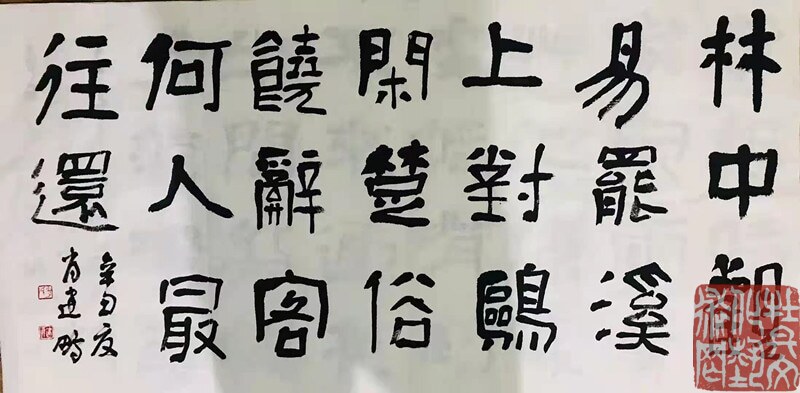 林中觀
易罷溪
上對鷗
閑楚俗
饒辭客
何人最
往還
辛丑夏
肖建